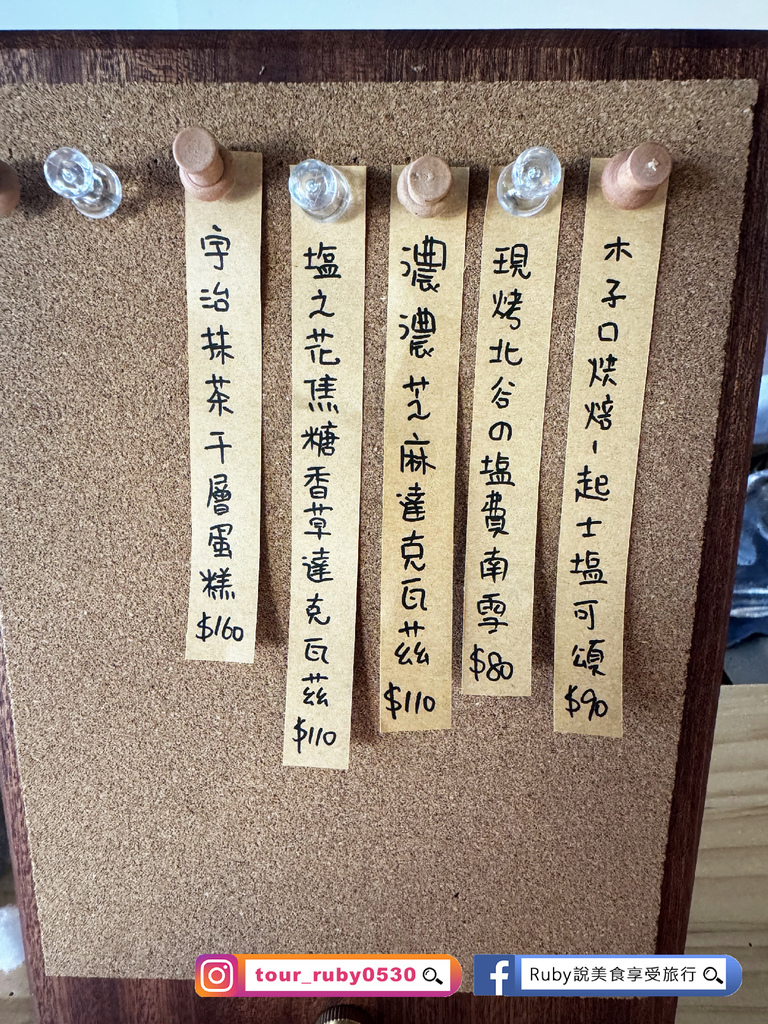 木子口烘焙-起士塩可頌$90
現烤北谷の塩費南雪$80
濃濃芝麻達克瓦茲$110
塩之花焦糖香草達克瓦茲$110
宇治抹茶千層蛋糕$160
tour_ruby0530
Ruby說美食享受旅行